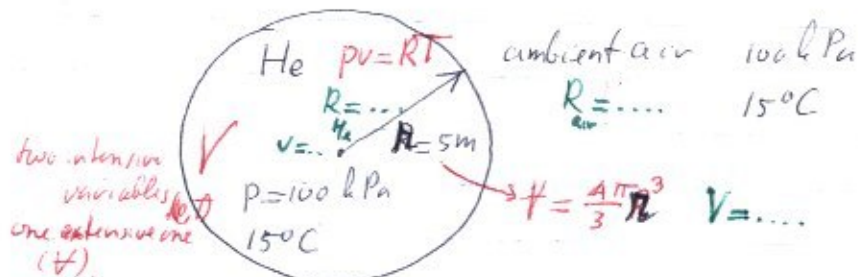 He pv=RT
ambient air 100 kPa
R=.... He
R air=.... 15°C
v=.. r=5m
two intensive
variables
p=100 kPa
one extensive one
V=4/3 π r³ V=....
(V)
15°C